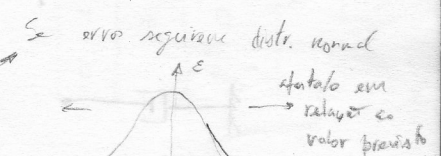 Se erros seguirem distr. normal
ε
afastado em
relação ao
valor previsto